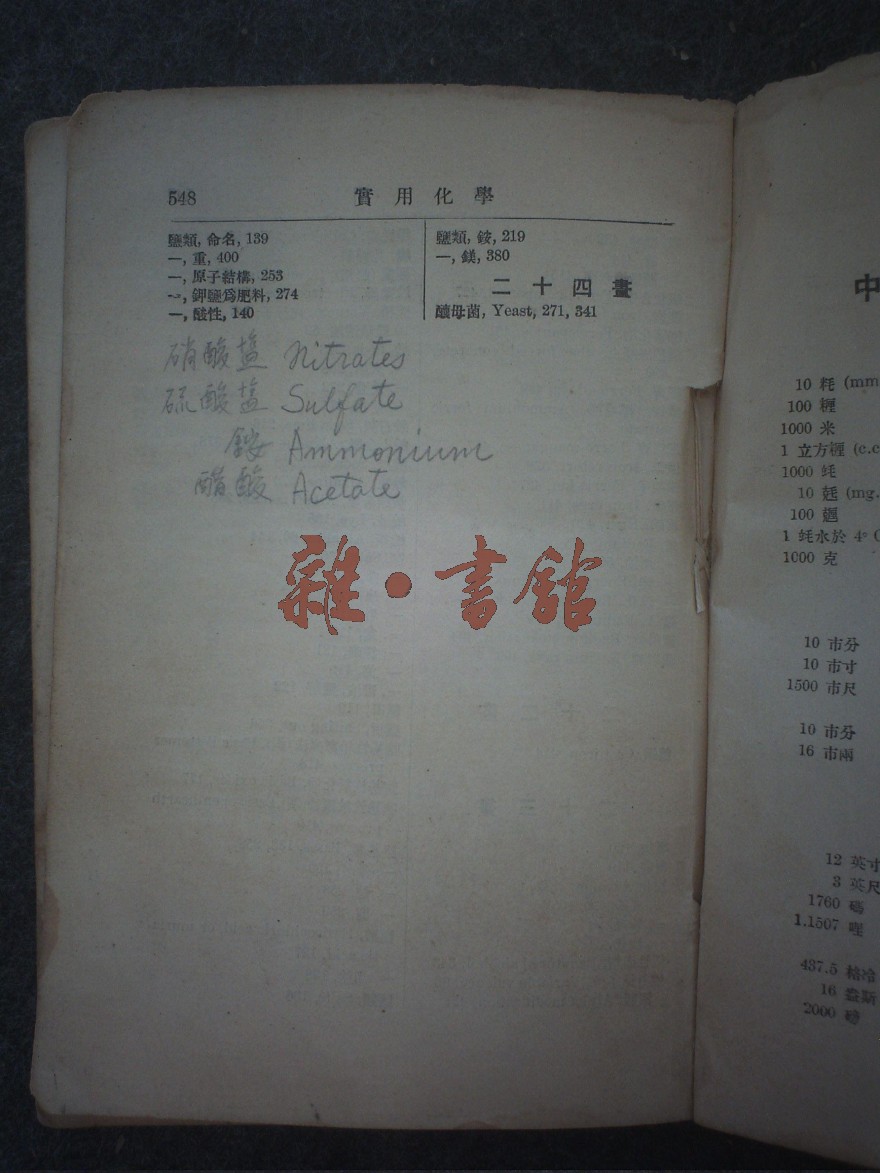 548 實用化學
鹽類, 命名, 139
一, 重, 400
一, 原子結構, 253
一, 鉀鹽爲肥料, 274
一, 酸性, 140
鹽類, 銨, 219
一, 鎂, 380
二十四畫
釀母菌, Yeast, 271, 341
硝酸盐 Nitrates
硫酸盐 Sulfate
銨 Ammonium
醋酸 Acetate
雜·書館
中
10 粍 (mm
100 糎
1000 米
1 立方糎 (c.c
1000 蚝
10 兛 (mg.
100
1 蚝水於 4° C
1000 克
10 市分
10 市寸
1500 市尺
10 市分
16 市兩
12 英寸
3 英尺
1760 碼
1.1507 哩
437.5 格冷
16 盎斯
2000 磅